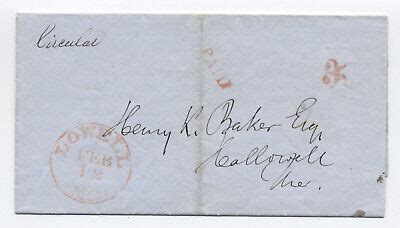 Circular
PAID
3
Henry K. Baker Esq.
Hallowell
Me.
LOWELL
FEB
Ms.